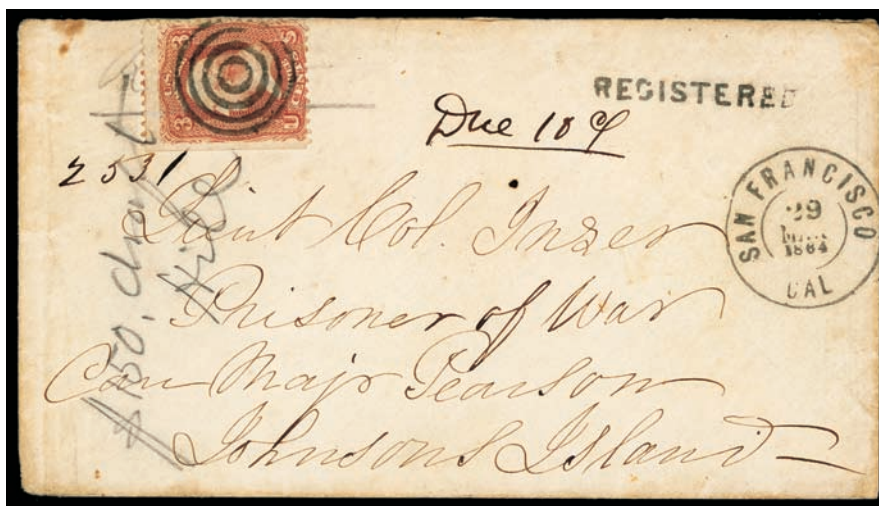 REGISTERED
Due 10 ¢
2531
SAN FRANCISCO
29
1864
CAL
Lieut Col. Inzer
Prisoner of War
Care Majr Pearson
Johnsons Island
$150. draft